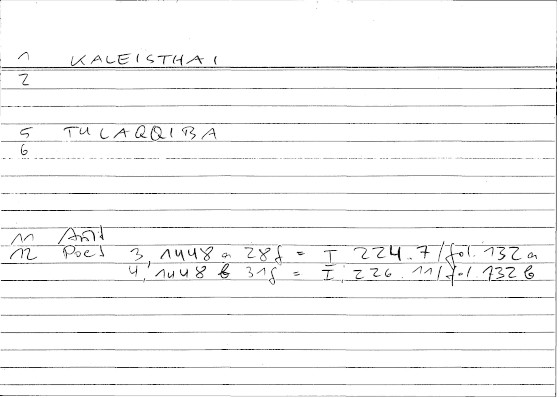 1 KALEISTHAI
2
5 THLAQQIBA
6
11 Arist
12 Poes 3, 1448 a 28f = I 224.7/fol. 132 a
4, 1448 b 31f = I, 226.11/fol. 132 b